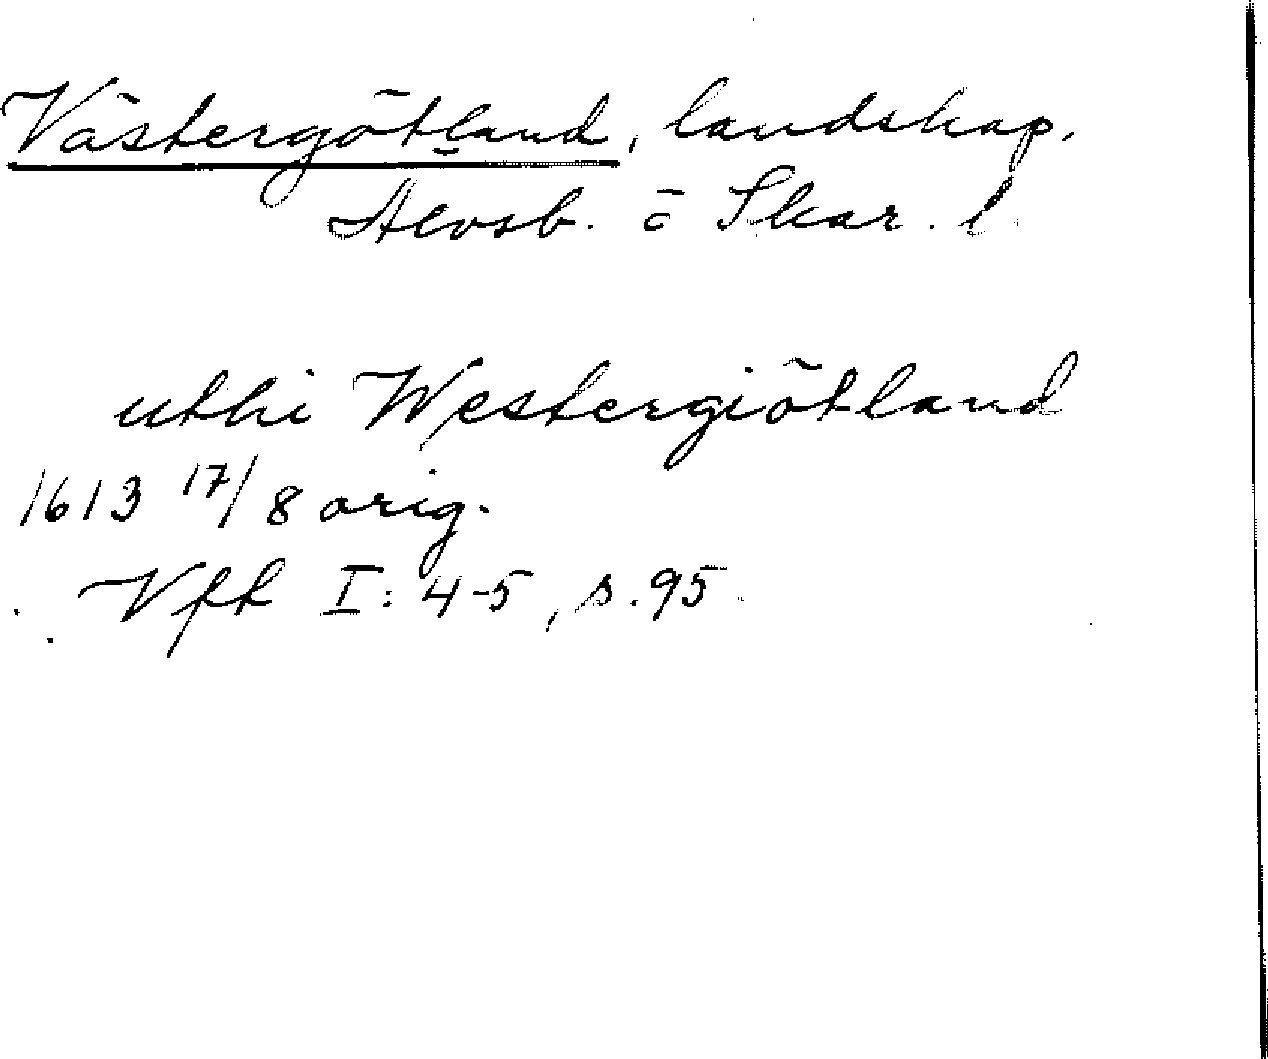 Västergötland, landskap.
Älvsb. o Skar. l.
uthi Westergiötland
1613 17/8 orig.
Vfft I: 4-5, s. 95